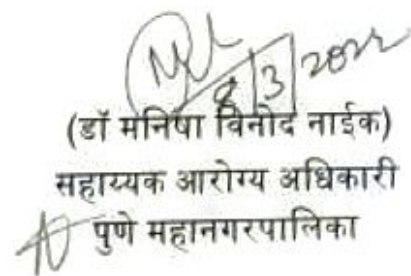 8/3/2022
(डॉ मनिषा विनोद नाईक)
सहाय्यक आरोग्य अधिकारी
पुणे महानगरपालिका